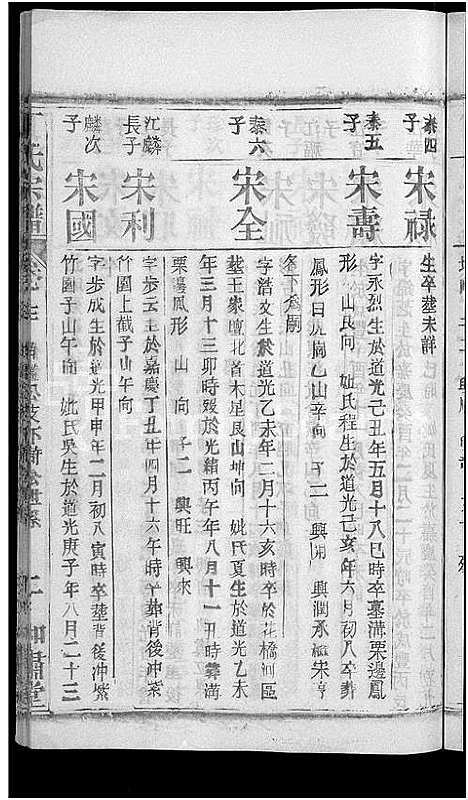 泰四
子
宋祿
生卒塟未詳
泰五
子
宋壽
字永烈生於道光己丑年五月十八巳時卒墓溝栗邊鳳
形 山艮向 妣氏程生於道光己亥年六月初八卒葬
鳳形 乙山辛向 子二 興開 興潤承繼宋亨
名下為嗣
泰六
子
宋全
字浩文生於道光乙未年二月十六亥時卒於花橋河區
塟王家 北首木星艮山坤向 妣氏夏生於道光乙未
年三月十三卯時歿於光緒丙午年八月十一丑時葬溝
栗邊鳳形 山 向 子二 興旺 興來
江麟
長子
宋利
字步云生於嘉慶丁丑年四月十六午時卒葬背後冲紫
竹園上截子山午向
麟次
子
宋國
字步成生於道光甲申年二月初八寅時卒塟背後冲紫
竹園子山午向 妣氏吳生於道光庚子年八月二十三
丁氏宗譜
世系
二